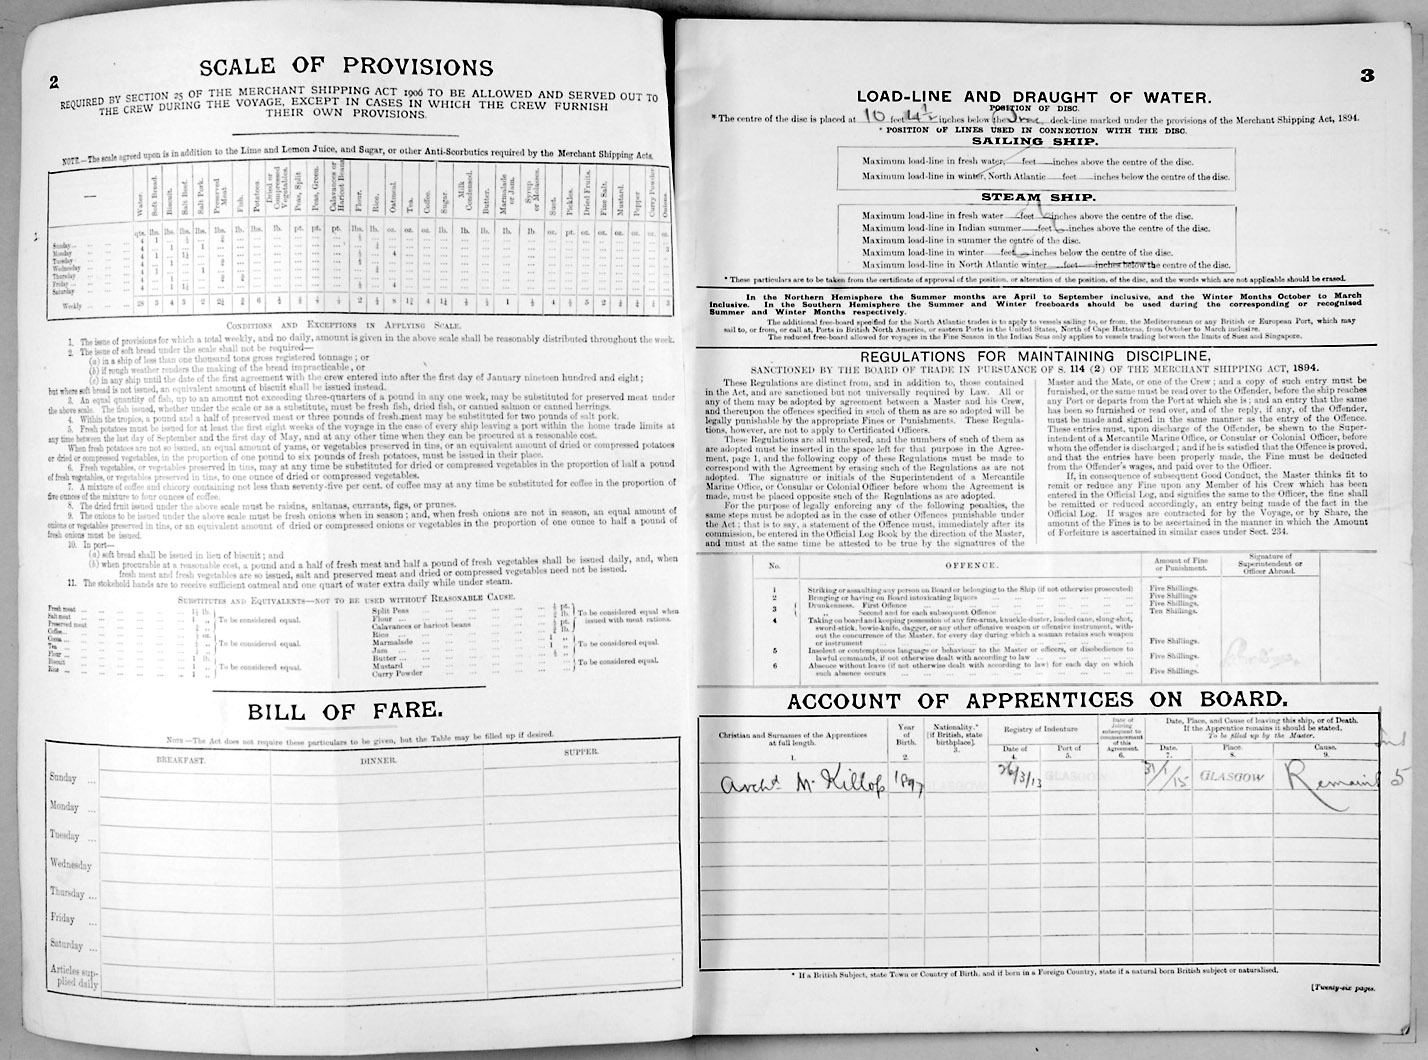 2
SCALE OF PROVISIONS
REQUIRED BY SECTION 25 OF THE MERCHANT SHIPPING ACT 1906 TO BE ALLOWED AND SERVED OUT TO
THE CREW DURING THE VOYAGE, EXCEPT IN CASES IN WHICH THE CREW FURNISH
THEIR OWN PROVISIONS.
NOTE.—The scale agreed upon is in addition to the Lime and Lemon Juice, and Sugar, or other Anti-Scorbutics required by the Merchant Shipping Acts.
Water. Soft Bread. Biscuit. Salt Beef. Salt Pork. Preserved Meat. Fish. Potatoes. Dried or Compressed Vegetables. Peas, Split. Peas, Green. Calavances or Haricot Beans. Flour. Rice. Oatmeal. Tea. Coffee. Sugar. Milk Condensed. Butter. Marmalade or Jam. Syrup or Molasses. Suet. Pickles. Dried Fruits. Fine Salt. Mustard. Pepper. Curry Powder. Onions.
qts. lbs. lbs. lbs. lbs. lbs. lb. lbs. lb. pt. pt. pt. lbs. lb. oz. oz. oz. lb. lb. lb. lb. lb. oz. pt. oz. oz. oz. oz. oz. oz.
Sunday
Monday
Tuesday
Wednesday
Thursday
Friday
Saturday
Weekly
CONDITIONS AND EXCEPTIONS IN APPLYING SCALE.
1. The issue of provisions for which a total weekly, and no daily, amount is given in the above scale shall be reasonably distributed throughout the week.
2. The issue of soft bread under the scale shall not be required—
(a) in a ship of less than one thousand tons gross registered tonnage; or
(b) if rough weather renders the making of the bread impracticable, or
(c) in any ship until the date of the first agreement with the crew entered into after the first day of January nineteen hundred and eight;
but where soft bread is not issued, an equivalent amount of biscuit shall be issued instead.
3. An equal quantity of fish, up to an amount not exceeding three-quarters of a pound in any one week, may be substituted for preserved meat under
the above scale. The fish issued, whether under the scale or as a substitute, must be fresh fish, dried fish, or canned salmon or canned herrings.
4. Within the tropics, a pound and a half of preserved meat or three pounds of fresh meat may be substituted for two pounds of salt pork.
5. Fresh potatoes must be issued for at least the first eight weeks of the voyage in the case of every ship leaving a port within the home trade limits at
any time between the last day of September and the first day of May, and at any other time when they can be procured at a reasonable cost.
When fresh potatoes are not so issued, an equal amount of yams, or vegetables preserved in tins, or an equivalent amount of dried or compressed potatoes
or dried or compressed vegetables, in the proportion of one pound to six pounds of fresh potatoes, must be issued in their place.
6. Fresh vegetables, or vegetables preserved in tins, may at any time be substituted for dried or compressed vegetables in the proportion of half a pound
of fresh vegetables, or vegetables preserved in tins, to one ounce of dried or compressed vegetables.
7. A mixture of coffee and chicory containing not less than seventy-five per cent. of coffee may at any time be substituted for coffee in the proportion of
five ounces of the mixture to four ounces of coffee.
8. The dried fruit issued under the above scale must be raisins, sultanas, currants, figs, or prunes.
9. The onions to be issued under the above scale must be fresh onions when in season; and, when fresh onions are not in season, an equal amount of
onions or vegetables preserved in tins, or an equivalent amount of dried or compressed onions or vegetables in the proportion of one ounce to half a pound of
fresh onions must be issued.
10. In port—
(a) soft bread shall be issued in lieu of biscuit; and
(b) when procurable at a reasonable cost, a pound and a half of fresh meat and half a pound of fresh vegetables shall be issued daily, and, when
fresh meat and fresh vegetables are so issued, salt and preserved meat and dried or compressed vegetables need not be issued.
11. The stokehold hands are to receive sufficient oatmeal and one quart of water extra daily while under steam.
SUBSTITUTES AND EQUIVALENTS—NOT TO BE USED WITHOUT REASONABLE CAUSE.
Fresh meat
Salt meat
Preserved meat
To be considered equal.
Coffee
Cocoa
Tea
To be considered equal.
Flour
Biscuit
Rice
To be considered equal.
Split Peas
Flour
Calavances or haricot beans
Rice
To be considered equal when issued with meat rations.
Marmalade
Jam
Butter
To be considered equal.
Mustard
Curry Powder
To be considered equal.
BILL OF FARE.
NOTE—The Act does not require these particulars to be given, but the Table may be filled up if desired.
BREAKFAST. DINNER. SUPPER.
Sunday ...
Monday ...
Tuesday ...
Wednesday
Thursday ...
Friday ...
Saturday ...
Articles supplied daily
3
LOAD-LINE AND DRAUGHT OF WATER.
POSITION OF DISC.
* The centre of the disc is placed at 10 feet 4½ inches below the deck-line marked under the provisions of the Merchant Shipping Act, 1894.
* POSITION OF LINES USED IN CONNECTION WITH THE DISC.
SAILING SHIP.
Maximum load-line in fresh water, feet inches above the centre of the disc.
Maximum load-line in winter, North Atlantic feet inches below the centre of the disc.
STEAM SHIP.
Maximum load-line in fresh water feet inches above the centre of the disc.
Maximum load-line in Indian summer feet 6 inches above the centre of the disc.
Maximum load-line in summer the centre of the disc.
Maximum load-line in winter feet 6 inches below the centre of the disc.
Maximum load-line in North Atlantic winter feet inches below the centre of the disc.
* These particulars are to be taken from the certificate of approval of the position, or alteration of the position, of the disc, and the words which are not applicable should be erased.
In the Northern Hemisphere the Summer months are April to September inclusive, and the Winter Months October to March
inclusive. In the Southern Hemisphere the Summer and Winter freeboards should be used during the corresponding or recognised
Summer and Winter Months respectively.
The additional free-board specified for the North Atlantic trades is to apply to vessels sailing to, or from, the Mediterranean or any British or European Port, which may
sail to, or from, or call at, Ports in British North America, or eastern Ports in the United States, North of Cape Hatteras, from October to March inclusive.
The reduced free-board allowed for voyages in the Fine Season in the Indian Seas only applies to vessels trading between the limits of Suez and Singapore.
REGULATIONS FOR MAINTAINING DISCIPLINE,
SANCTIONED BY THE BOARD OF TRADE IN PURSUANCE OF S. 114 (2) OF THE MERCHANT SHIPPING ACT, 1894.
These Regulations are distinct from, and in addition to, those contained
in the Act, and are sanctioned but not universally required by Law. All or
any of them may be adopted by agreement between a Master and his Crew,
and thereupon the offences specified in such of them as are so adopted will be
legally punishable by the appropriate Fines or Punishments. These Regula-
tions, however, are not to apply to Certificated Officers.
These Regulations are all numbered, and the numbers of such of them as
are adopted must be inserted in the space left for that purpose in the Agree-
ment, page 1, and the following copy of these Regulations must be made to
correspond with the Agreement by erasing such of the Regulations as are not
adopted. The signature or initials of the Superintendent of a Mercantile
Marine Office, or Consular or Colonial Officer before whom the Agreement is
made, must be placed opposite such of the Regulations as are adopted.
For the purpose of legally enforcing any of the following penalties, the
same steps must be adopted as in the case of other Offences punishable under
the Act; that is to say, a statement of the Offence must, immediately after its
commission, be entered in the Official Log Book by the direction of the Master,
and must at the same time be attested to be true by the signatures of the
Master and the Mate, or one of the Crew; and a copy of such entry must be
furnished, or the same must be read over to the Offender, before the ship reaches
any Port or departs from the Port at which she is; and an entry that the same
has been so furnished or read over, and of the reply, if any, of the Offender,
must be made and signed in the same manner as the entry of the Offence.
These entries must, upon discharge of the Offender, be shewn to the Super-
intendent of a Mercantile Marine Office, or Consular or Colonial Officer, before
whom the offender is discharged; and if he is satisfied that the Offence is proved,
and that the entries have been properly made, the Fine must be deducted
from the Offender's wages, and paid over to the Officer.
If, in consequence of subsequent Good Conduct, the Master thinks fit to
remit or reduce any Fine upon any Member of his Crew which has been
entered in the Official Log, and signifies the same to the Officer, the fine shall
be remitted or reduced accordingly, an entry being made of the fact in the
Official Log. If wages are contracted for by the Voyage, or by Share, the
amount of the Fines is to be ascertained in the manner in which the Amount
of Forfeiture is ascertained in similar cases under Sect. 234.
No. OFFENCE. Amount of Fine or Punishment. Signature of Superintendent or Officer Abroad.
1 Striking or assaulting any person on Board or belonging to the Ship (if not otherwise prosecuted) Five Shillings.
2 Bringing or having on Board intoxicating liquors Five Shillings.
3 Drunkenness. First Offence Five Shillings.
„ Second and for each subsequent Offence Ten Shillings.
4 Taking on board and keeping possession of any fire-arms, knuckle-duster, loaded cane, slung-shot,
sword-stick, bowie-knife, dagger, or any other offensive weapon or offensive instrument, with-
out the concurrence of the Master, for every day during which a seaman retains such weapon
or instrument Five Shillings.
5 Insolent or contemptuous language or behaviour to the Master or officers, or disobedience to
lawful commands, if not otherwise dealt with according to law Five Shillings.
6 Absence without leave (if not otherwise dealt with according to law) for each day on which
such absence occurs Five Shillings.
ACCOUNT OF APPRENTICES ON BOARD.
Christian and Surnames of the Apprentices at full length. 1.
Year of Birth. 2.
Nationality.* [if British, state birthplace]. 3.
Registry of Indenture
Date of 4. Port of 5.
Date of Joining subsequent to commencement of this Agreement. 6.
Date, Place, and Cause of leaving this ship, or of Death.
If the Apprentice remains it should be stated.
To be filled up by the Master.
Date. 7. Place. 8. Cause. 9.
Archd McKillop 1897 GLASGOW 26/3/13 GLASGOW 31/1/15 GLASGOW Remains
* If a British Subject, state Town or Country of Birth, and if born in a Foreign Country, state if a natural born British subject or naturalised.
[Twenty-six pages.